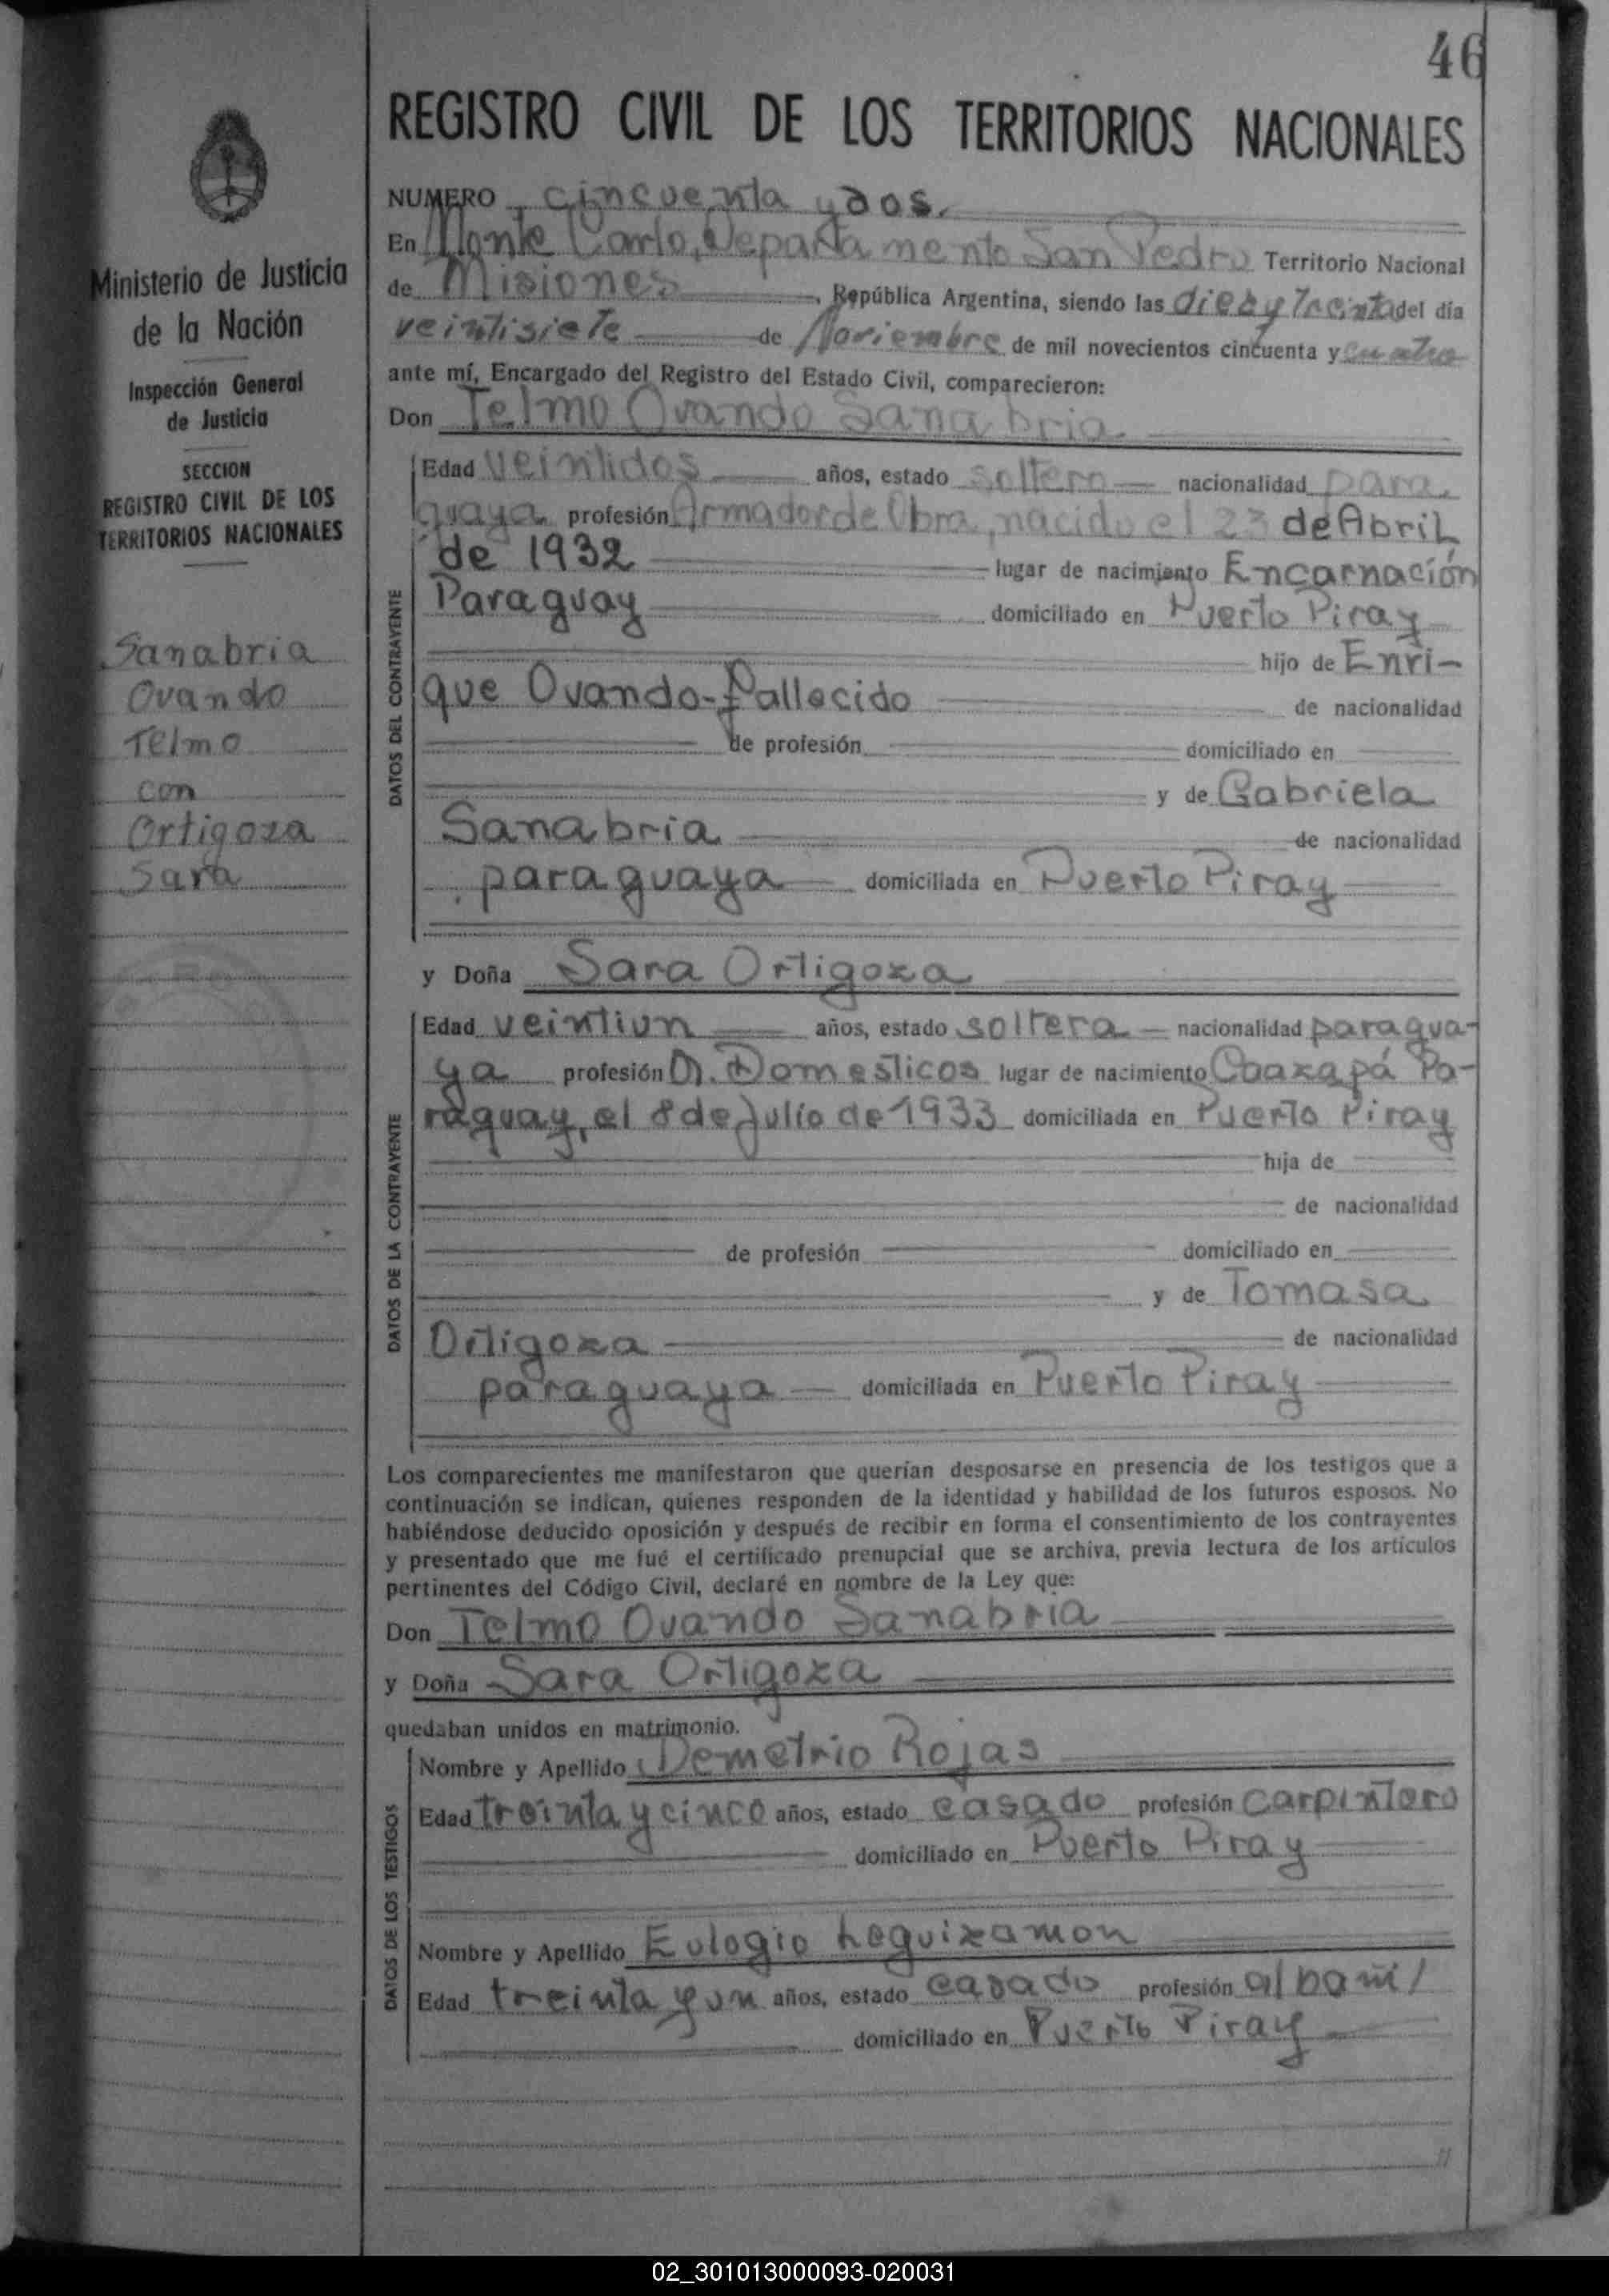 46
Ministerio de Justicia
de la Nación
Inspección General
de Justicia
SECCION
REGISTRO CIVIL DE LOS
TERRITORIOS NACIONALES
Sanabria
Ovando
Telmo
con
Ortigoza
Sara
REGISTRO CIVIL DE LOS TERRITORIOS NACIONALES
NUMERO cincuenta y dos.
En Monte Carlo, Departamento San Pedro Territorio Nacional
de Misiones, República Argentina, siendo las diez y treinta del día
veintisiete de Noviembre de mil novecientos cincuenta y cuatro
ante mí, Encargado del Registro del Estado Civil, comparecieron:
Don Telmo Ovando Sanabria
DATOS DEL CONTRAYENTE
Edad veintidos años, estado soltero nacionalidad para
guaya profesión Armador de Obra, nacido el 23 de Abril
de 1932 lugar de nacimiento Encarnación
Paraguay domiciliado en Puerto Piray
hijo de Enri-
que Ovando-fallecido de nacionalidad
de profesión domiciliado en
y de Gabriela
Sanabria de nacionalidad
paraguaya domiciliada en Puerto Piray
y Doña Sara Ortigoza
DATOS DE LA CONTRAYENTE
Edad veintiun años, estado soltera nacionalidad paragua-
ya profesión Q. Domesticos lugar de nacimiento Caazapá Pa-
raguay, el 8 de Julio de 1933 domiciliada en Puerto Piray
hija de
de nacionalidad
de profesión domiciliado en
y de Tomasa
Ortigoza de nacionalidad
paraguaya domiciliada en Puerto Piray
Los comparecientes me manifestaron que querían desposarse en presencia de los testigos que a
continuación se indican, quienes responden de la identidad y habilidad de los futuros esposos. No
habiéndose deducido oposición y después de recibir en forma el consentimiento de los contrayentes
y presentado que me fué el certificado prenupcial que se archiva, previa lectura de los artículos
pertinentes del Código Civil, declaré en nombre de la Ley que:
Don Telmo Ovando Sanabria
y Doña Sara Ortigoza
quedaban unidos en matrimonio.
DATOS DE LOS TESTIGOS
Nombre y Apellido Demetrio Rojas
Edad treinta y cinco años, estado casado profesión carpintero
domiciliado en Puerto Piray
Nombre y Apellido Eulogio Leguizamon
Edad treinta y un años, estado casado profesión albañil
domiciliado en Puerto Piray
//
02_301013000093-020031